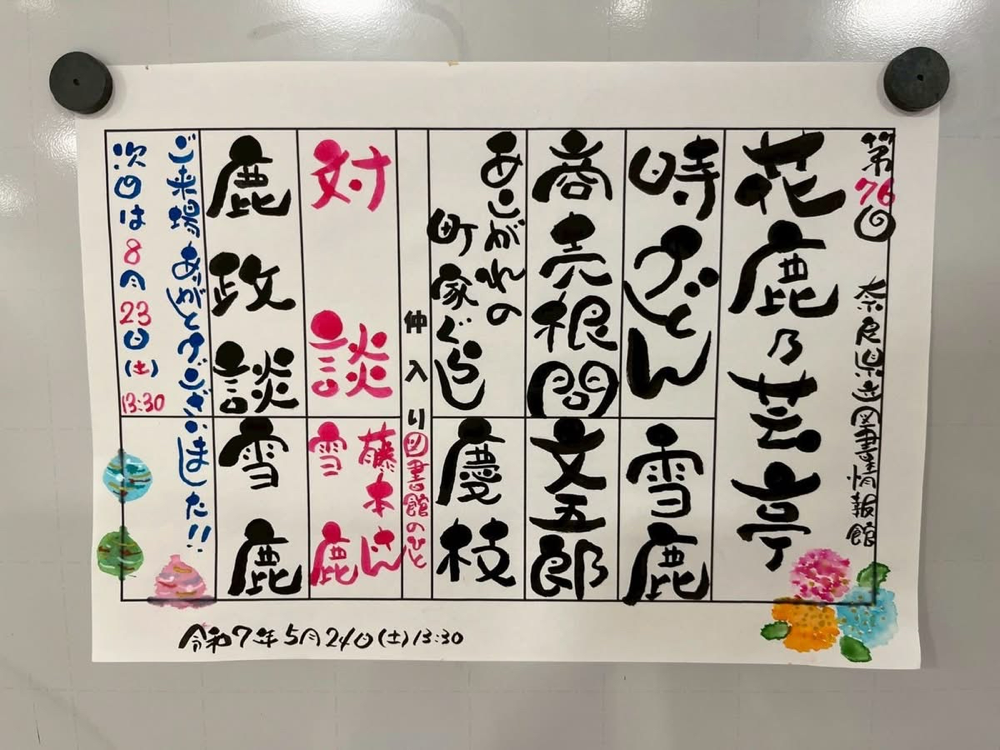 第76回 奈良県立図書情報館
花鹿乃芸亭
時うどん 雪鹿
商売根問 文五郎
あこがれの
町家ぐらし 慶枝
仲入り
図書館のひと
対談 藤本さん
雪鹿
鹿政談 雪鹿
ご来場ありがとうございました!!
次回は8月23日(土)
13:30
令和7年5月24日(土)13:30